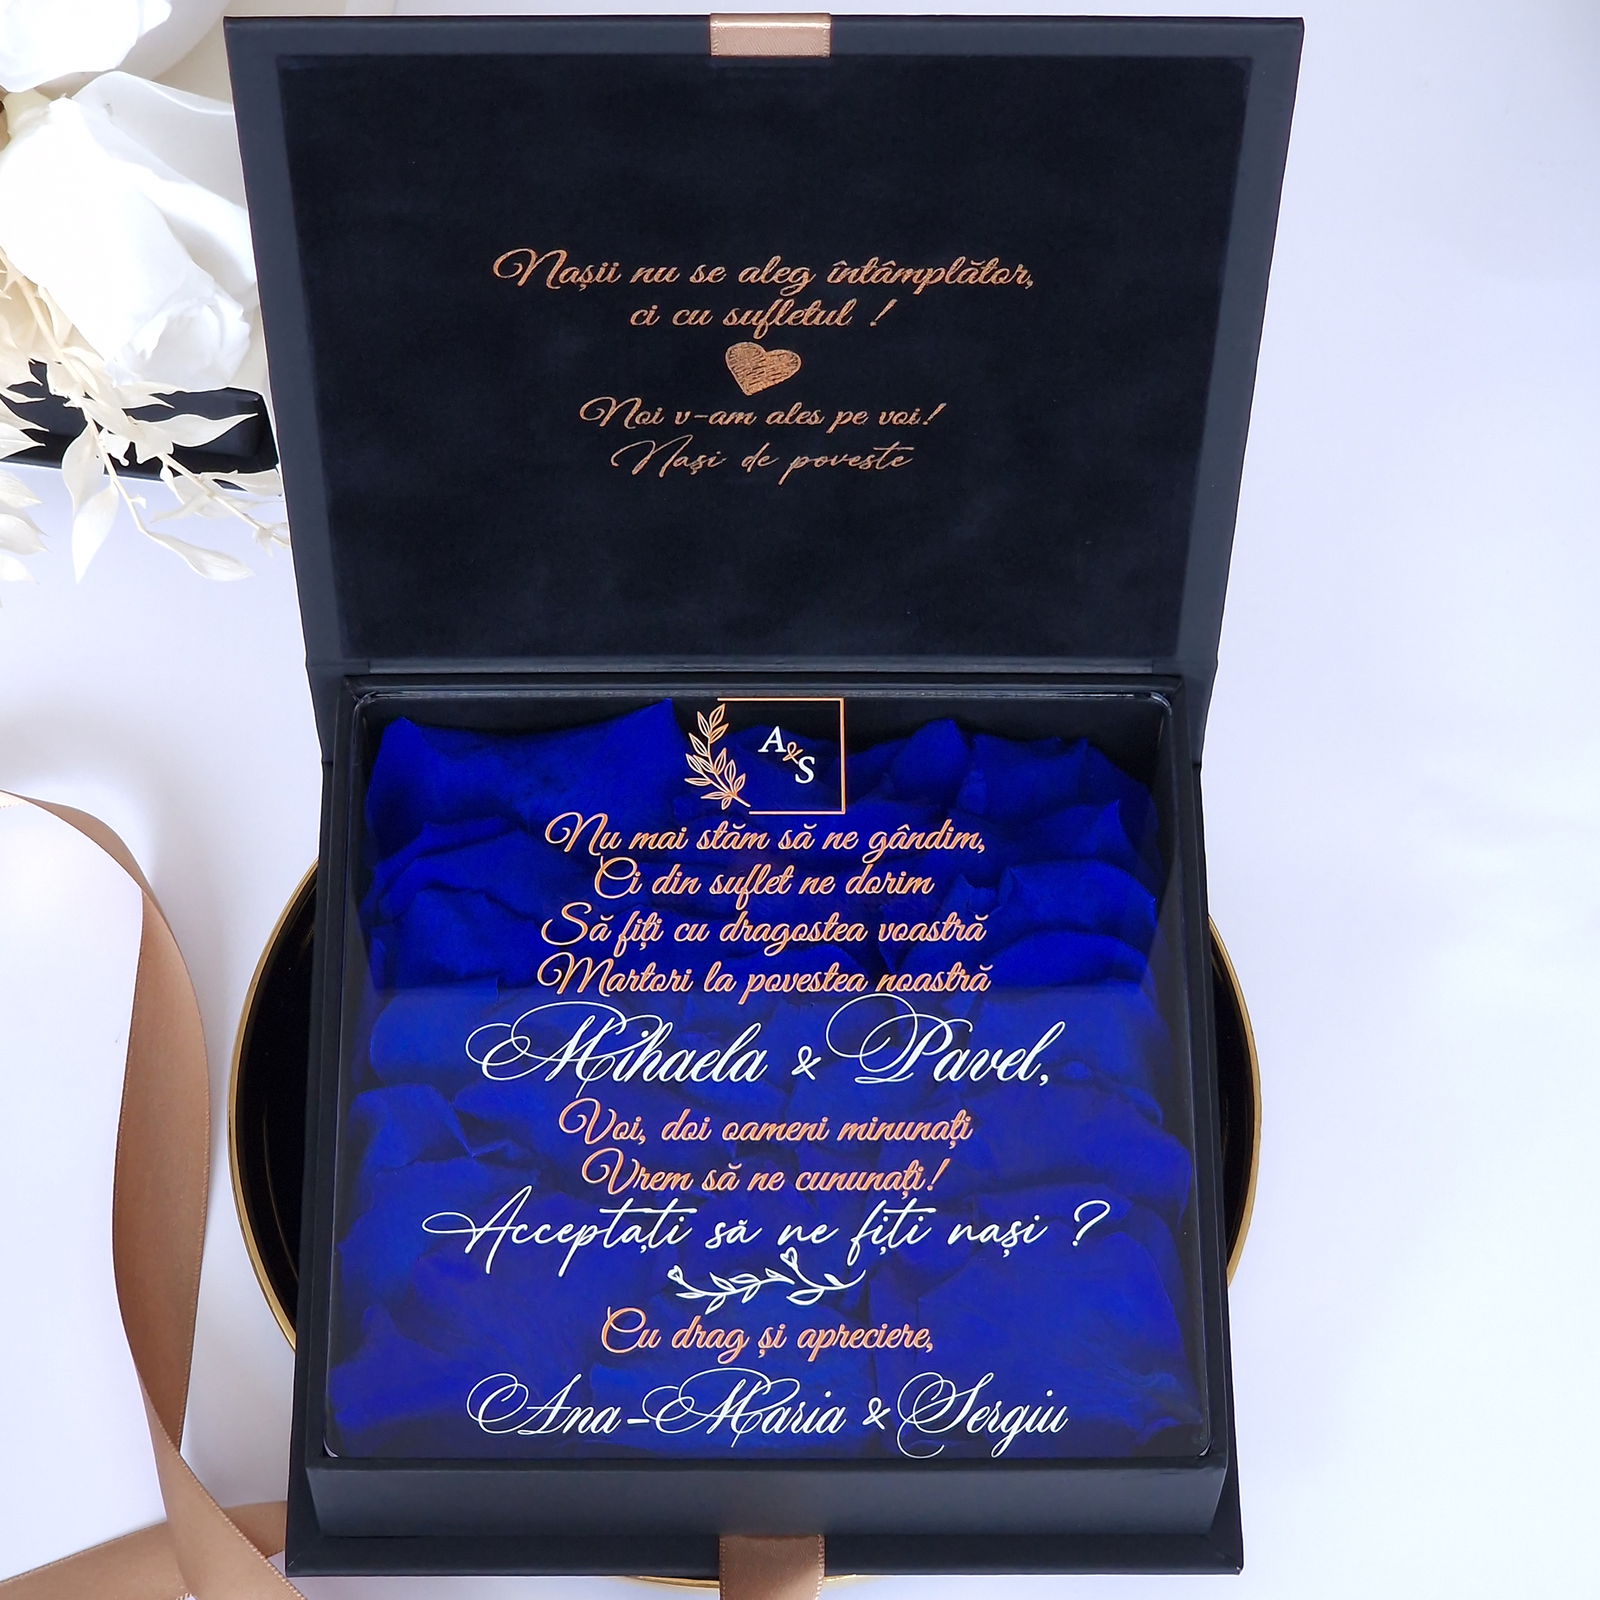 Nașii nu se aleg întâmplător,
ci cu sufletul !
Noi v-am ales pe voi!
Nași de poveste
A&S
Nu mai stăm să ne gândim,
Ci din suflet ne dorim
Să fiți cu dragostea voastră
Martori la povestea noastră
Mihaela & Pavel,
Voi, doi oameni minunați
Vrem să ne cununați!
Acceptați să ne fiți nași ?
Cu drag și apreciere,
Ana-Maria & Sergiu